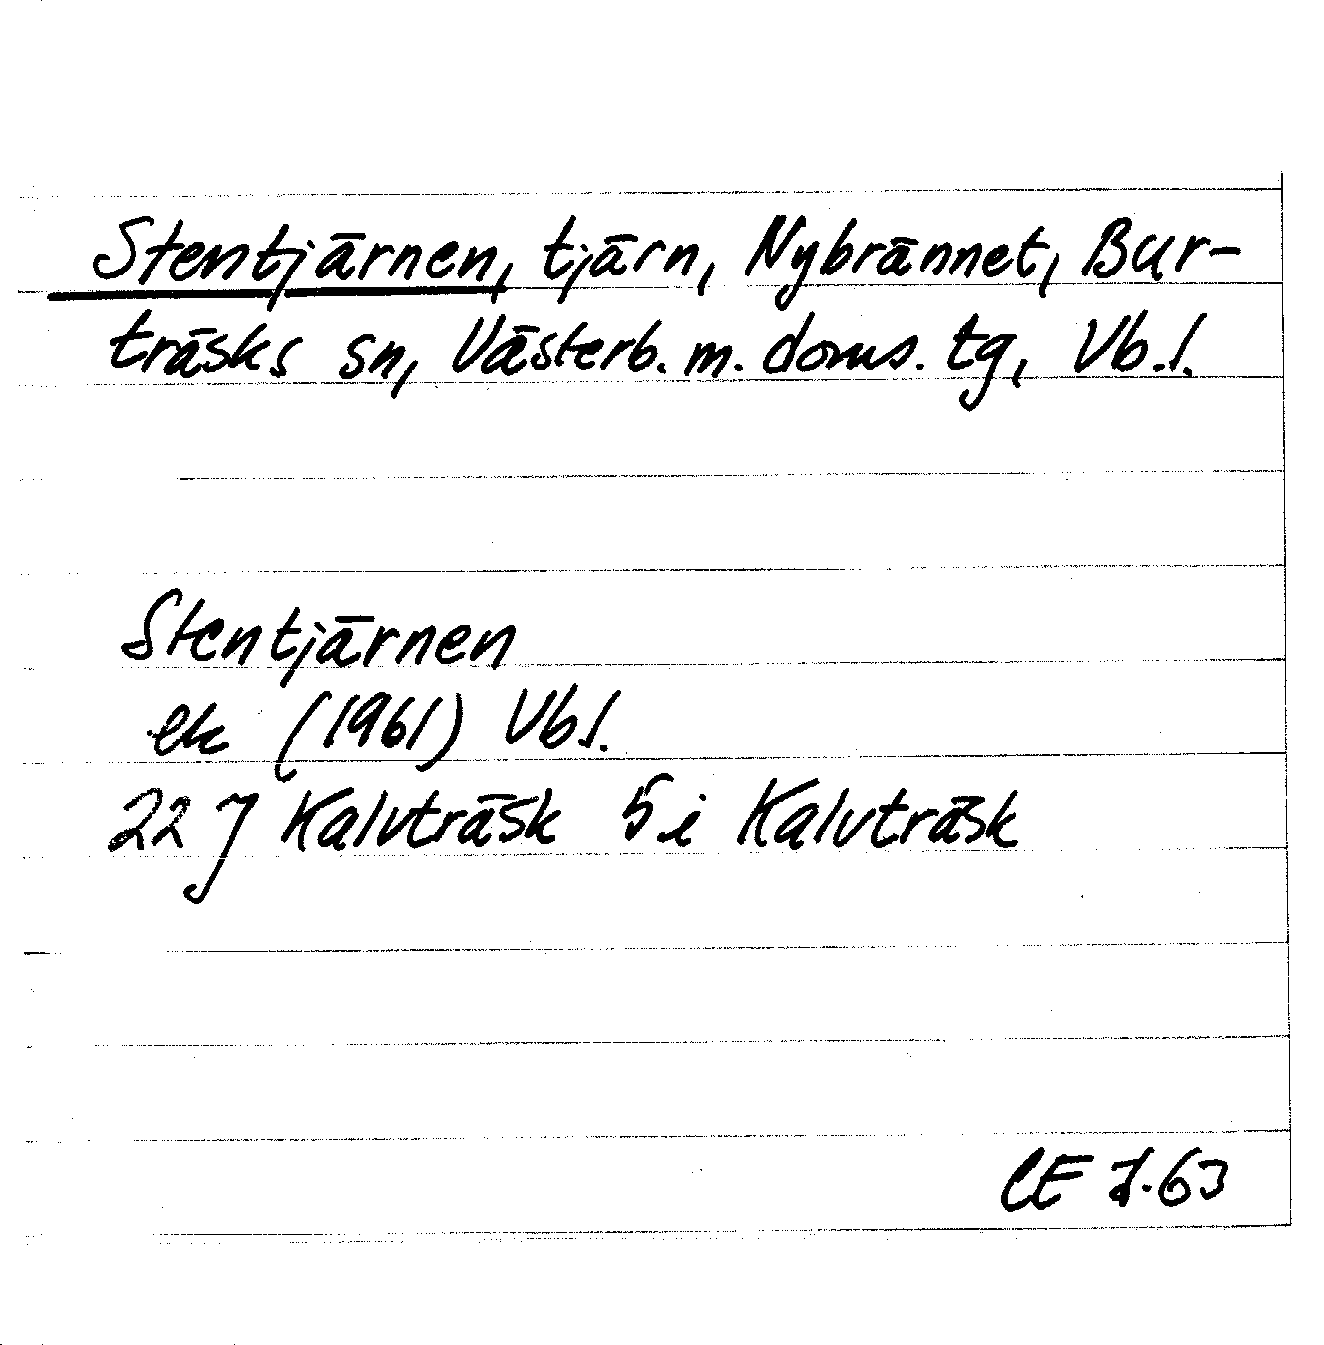 Stentjärnen, tjärn, Nybrännet, Bur-
träsks sn, Västerb. m. doms. tg, Vb.l.
Stentjärnen
ek (1961) Vbl.
22 J Kalvträsk 5 i Kalvträsk
CE 7.63